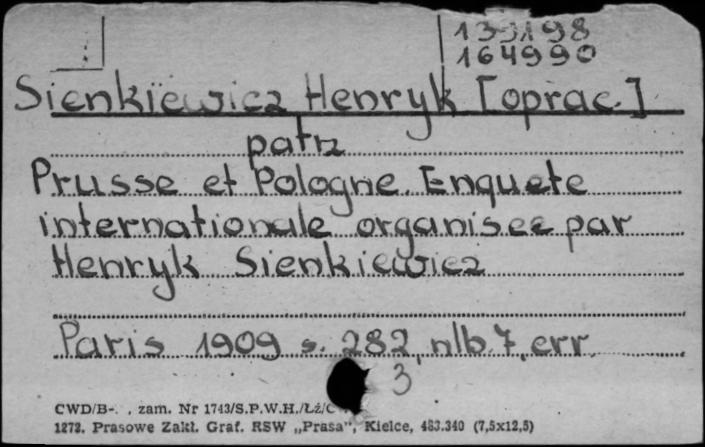 139198
164990
Sienkiewicz Henryk [oprac.]
patrz
Prusse et Pologne. Enquete
internationale organisee par
Henryk Sienkiewicz
Paris 1909 s. 282, nlb. 7, err.
3
CWD/B- . zam. Nr 1743/S.P.W.H./Łż/C
1272. Prasowe Zakł. Graf. RSW „Prasa", Kielce, 483.340 (7,5x12,5)